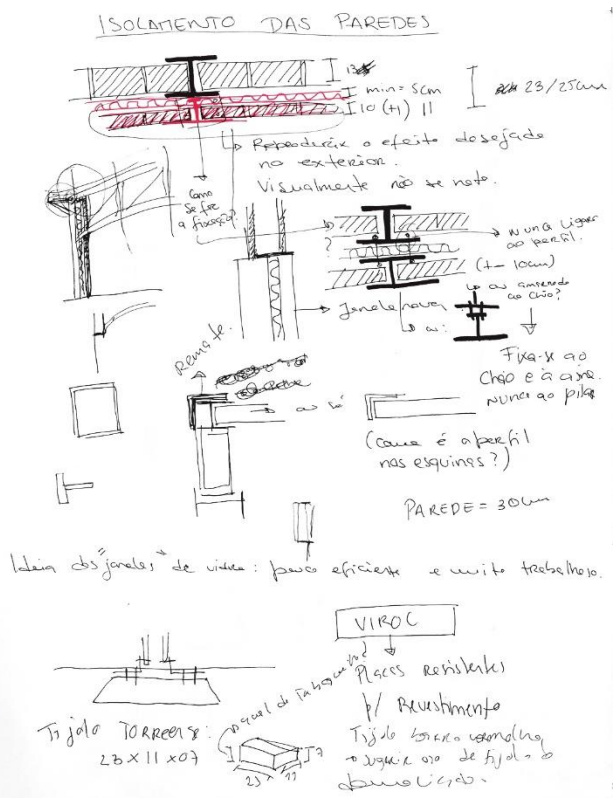 ISOLAMENTO DAS PAREDES
13
min = 5cm
10 (+1) 11
23/25cm
Reproduzir o efeito desejado
no exterior.
Visualmente não se nota.
Como
se faz
a fixação?
?
Nunca ligar
ao perfil.
(+- 10cm)
Janela nova
ou:
ou
ao chão?
Fixa-se ao
chão e à
nunca ao pilar
Remate.
ou só
(como é o perfil
nas esquinas?)
PAREDE = 30cm
Ideia das "janelas" de vidro: pouco eficiente e muito trabalhoso.
VIROC
Placas resistentes
p/ Revestimento
Tijolo TORREENSE:
23 x 11 x 07
7
23
11
Tijolo barro vermelho
sugerir uso de tijolo